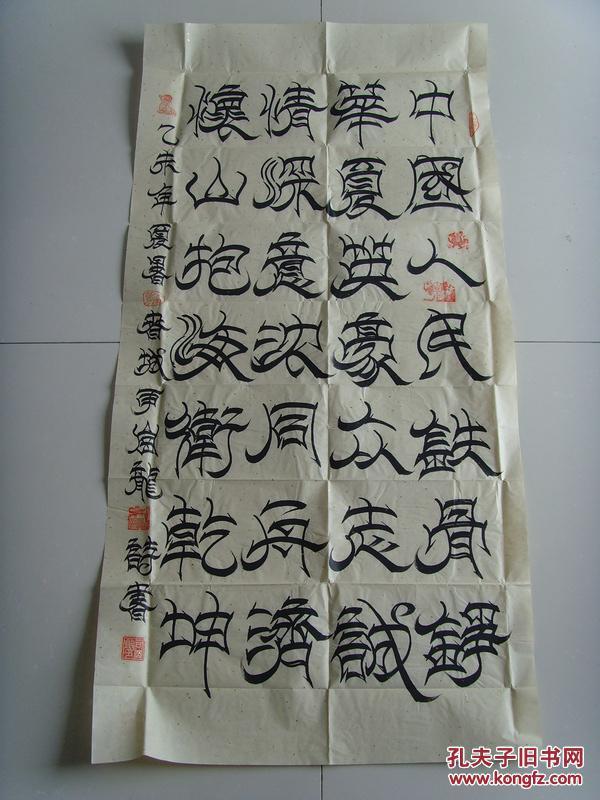 中國人民鉄骨錚
華夏英豪众志誠
情深意沈同舟濟
懷山抱海衛乾坤
乙未年夏暑 城 龍 書
孔夫子旧书网
www.kongfz.com